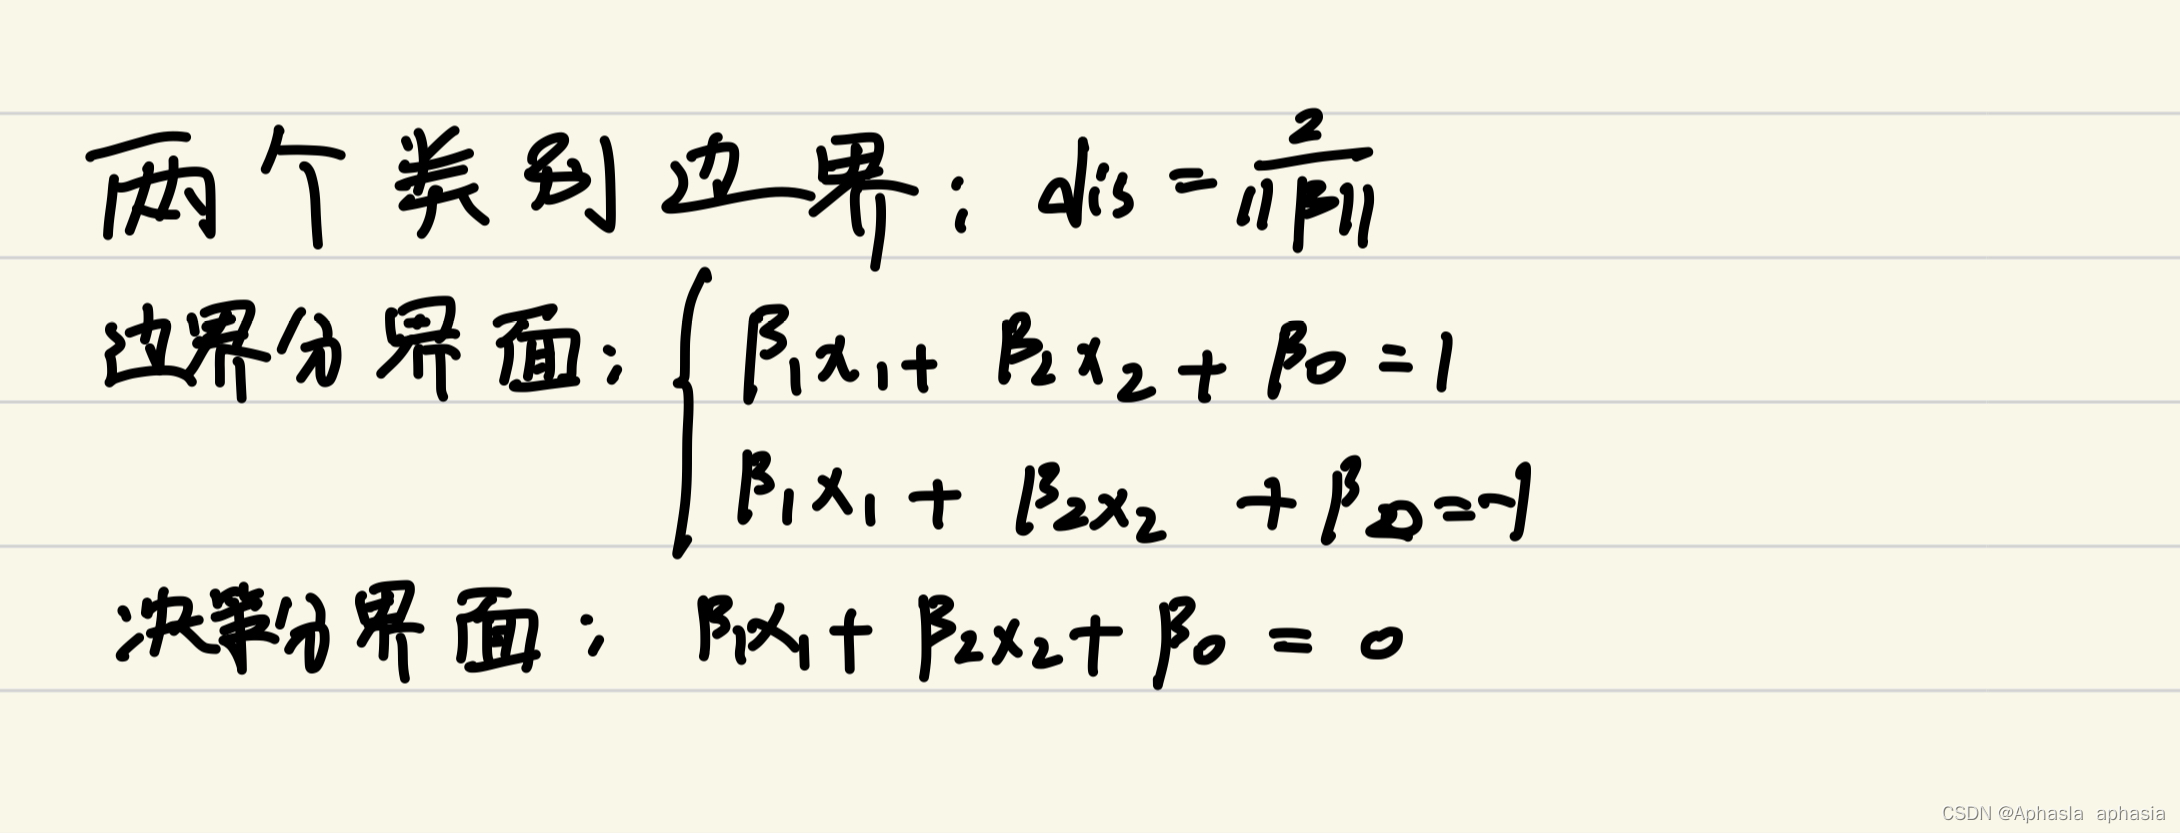 两个类别边界: dis = 2/||β||
边界分界面: { β₁x₁ + β₂x₂ + β₀ = 1
β₁x₁ + β₂x₂ + β₀ = -1
决策分界面: β₁x₁ + β₂x₂ + β₀ = 0
CSDN @Aphasla aphasia